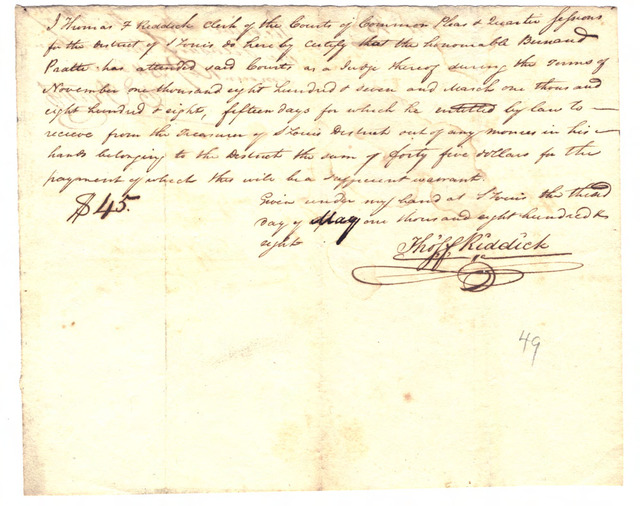 I Thomas F Riddick Clerk of the Courts of Common Pleas & Quarter Sessions
for the District of St Louis do hereby certify that the honourable Bernard
Pratte has attended said Courts as a Judge thereof during the terms of
November one thousand eight hundred & seven and March one thousand
eight hundred & eight, fifteen days for which he entitled by law to
recieve from the Treasurer of St Louis District out of any monies in his
hands belonging to the District the sum of forty five dollars for the
payment of which this will be a sufficient warrant
$45. Given under my hand at St Louis the third
day of May one thousand eight hundred &
eight
Tho F Riddick
49